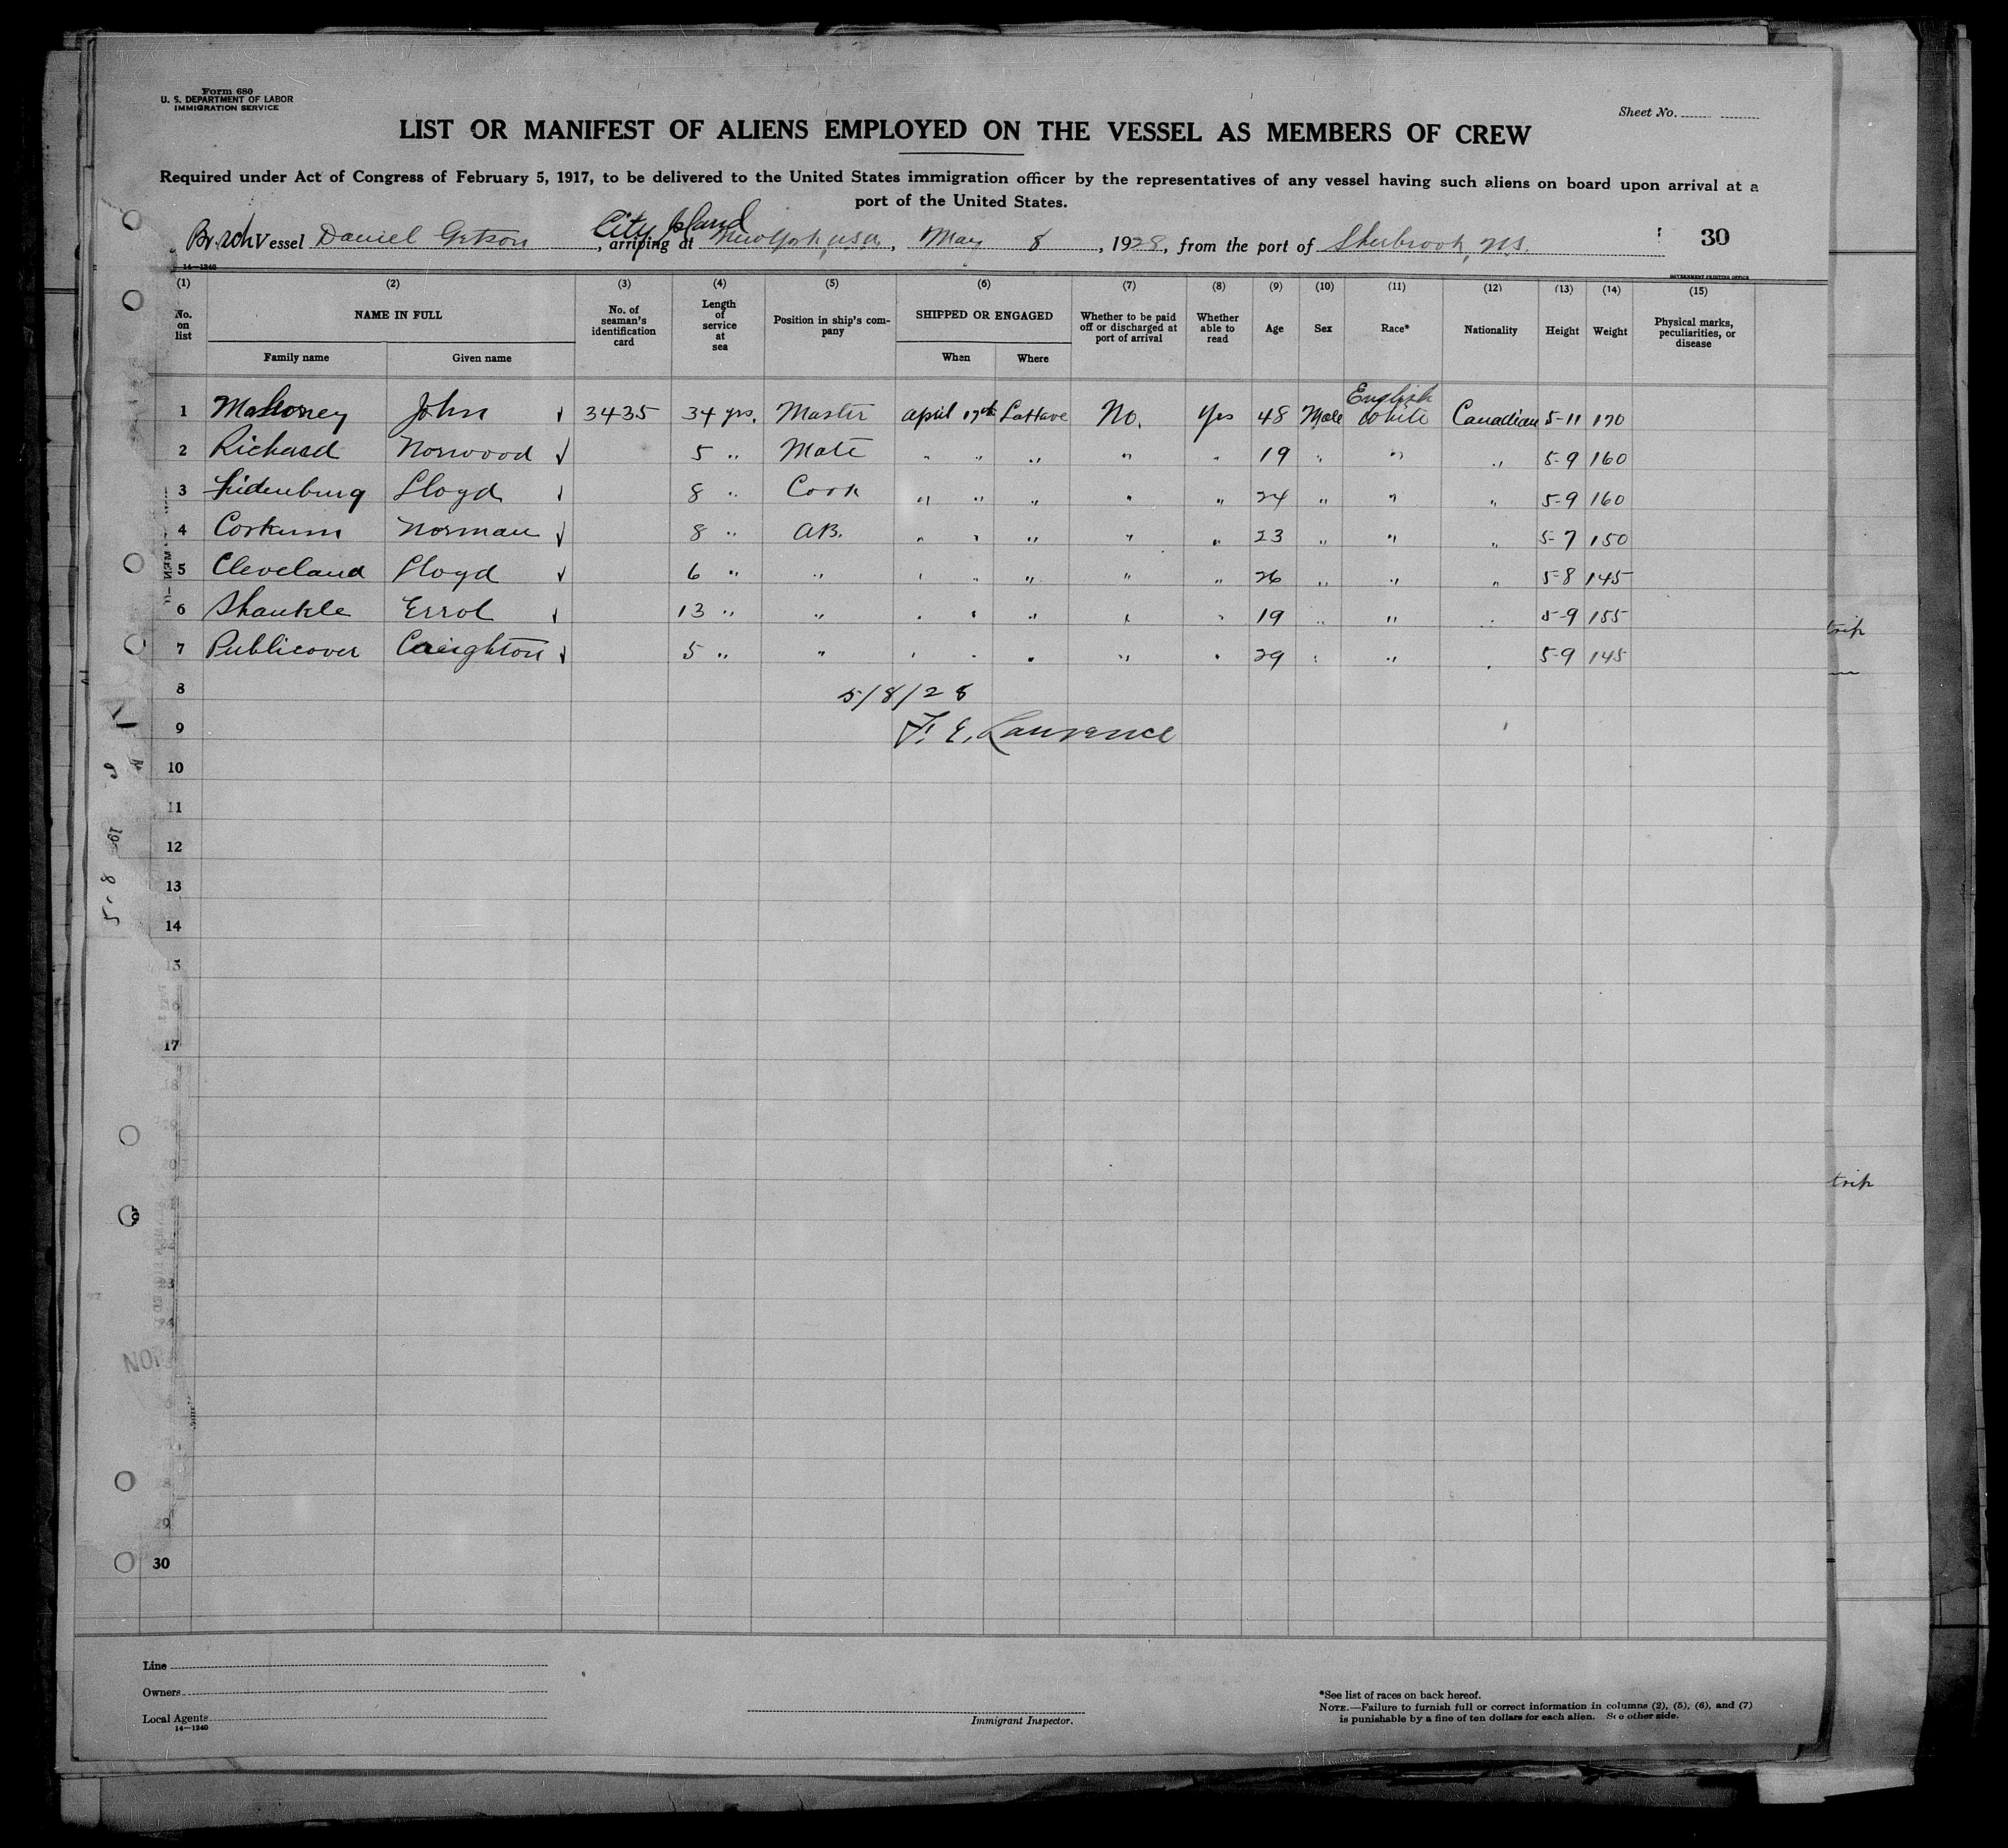 Form 680
U. S. DEPARTMENT OF LABOR
IMMIGRATION SERVICE
Sheet No.
LIST OR MANIFEST OF ALIENS EMPLOYED ON THE VESSEL AS MEMBERS OF CREW
Required under Act of Congress of February 5, 1917, to be delivered to the United States immigration officer by the representatives of any vessel having such aliens on board upon arrival at a
port of the United States.
City Island
Br. Sch Vessel Daniel Getson, arriving at New York, USA, May 8, 1928, from the port of Sherbrook, N.S. 30
14—1240
GOVERNMENT PRINTING OFFICE
(1) (2) (3) (4) (5) (6) (7) (8) (9) (10) (11) (12) (13) (14) (15)
No. on list NAME IN FULL No. of seaman's identification card Length of service at sea Position in ship's company SHIPPED OR ENGAGED Whether to be paid off or discharged at port of arrival Whether able to read Age Sex Race* Nationality Height Weight Physical marks, peculiarities, or disease
Family name Given name When Where
English
1 Mahoney John 3435 34 yrs. Master April 17th LaHave No. Yes 48 Male White Canadian 5-11 170
2 Richard Norwood 5 " Mate " " " " " 19 " " " 5-9 160
3 Lloyd 8 " Cook " " " " " 24 " " " 5-9 160
4 Corkum Norman 8 " AB. " " " " " 23 " " " 5-7 150
5 Cleveland Lloyd 6 " " " " " " " 26 " " " 5-8 145
6 Shankle Errol 13 " " " " " " " 19 " " " 5-9 155
7 Publicover Creighton 5 " " " " " " " 29 " " " 5-9 145
8 5/8/28
9 F. E. Laurence
10
11
12
13
14
15
17
18
20
28
29
30
5-8
trip
trip
Line
Owners
Local Agents
14—1240
Immigrant Inspector.
*See list of races on back hereof.
NOTE.—Failure to furnish full or correct information in columns (2), (5), (6), and (7)
is punishable by a fine of ten dollars for each alien. See other side.